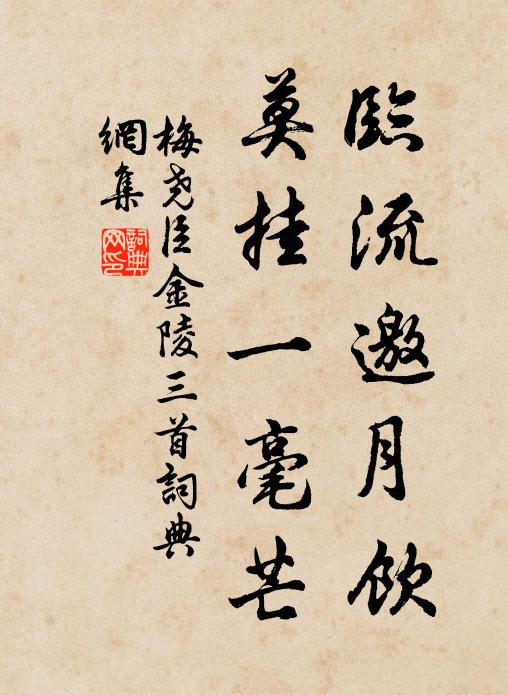 臨流邀月飲
莫挂一毫芒
梅尧臣金陵三首詞典
網集
詞典
网印